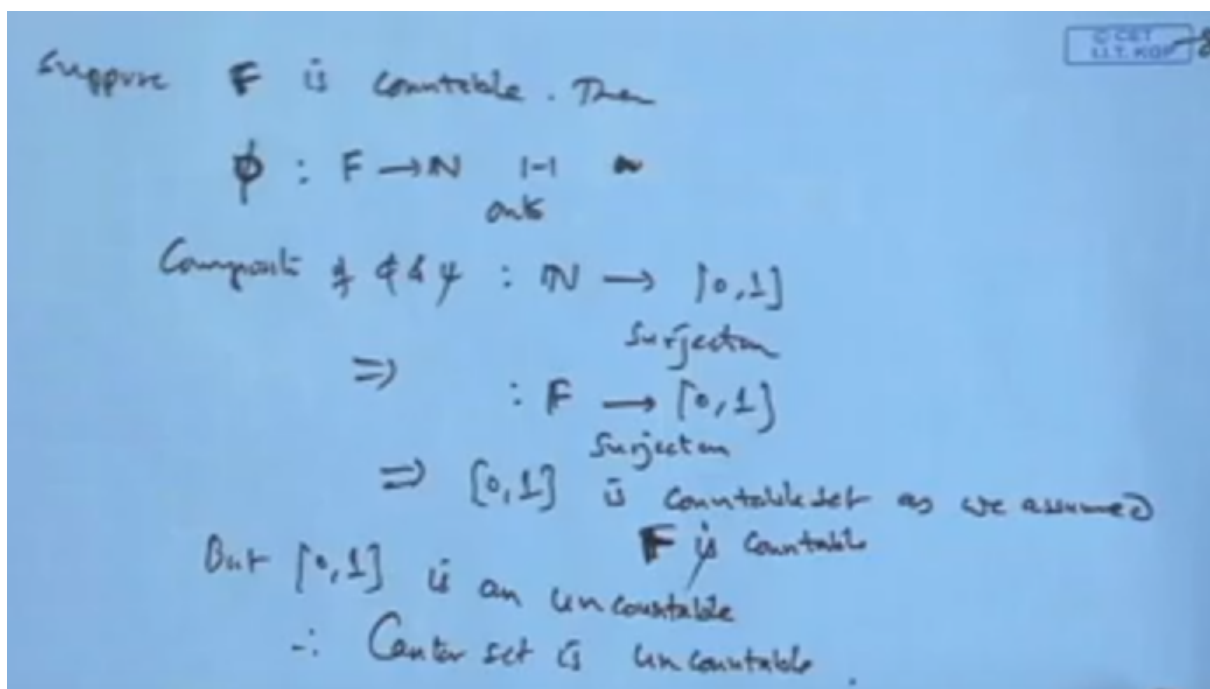 © CET
I.I.T. KGP
Suppose F is countable. Then
ϕ : F → N 1-1
onto
Composite of ϕ & ψ : N → [0,1]
Surjection
⇒ : F → [0,1]
Surjection
⇒ [0,1] is countable set as we assumed
F is countable
But [0,1] is an uncountable
∴ Cantor set is uncountable.